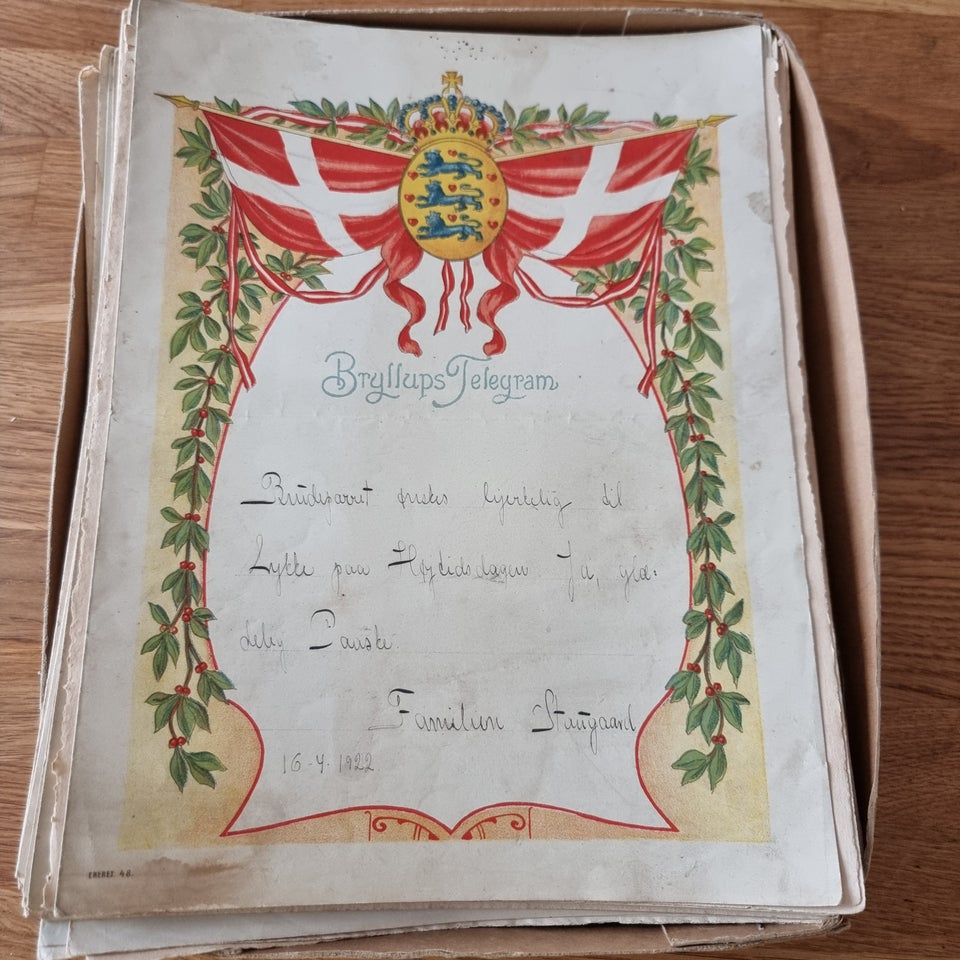 Bryllups Telegram
Brudeparret ønskes hjertelig til
Lykke paa Højtidsdagen. Ja, glæ=
delig Paaske.
Familien Staugaard
16-4. 1922
ENERET. 48.